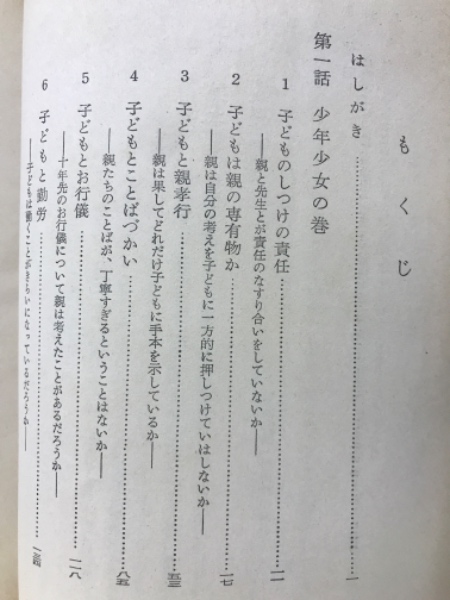 もくじ
はしがき……………………………一
第一話 少年少女の巻
1 子どものしつけの責任……………………一一
――親と先生とが責任のなすり合いをしていないか――
2 子どもは親の専有物か……………………一七
――親は自分の考えを子どもに一方的に押しつけていはしないか――
3 子どもと親孝行……………………五三
――親は果してどれだけ子どもに手本を示しているか――
4 子どもとことばづかい……………………八五
――親たちのことばが、丁寧すぎるということはないか――
5 子どもとお行儀……………………一一八
――十年先のお行儀について親は考えたことがあるだろうか――
6 子どもと勤労……………………
――子どもは働くことがきらいになっているだろうか――